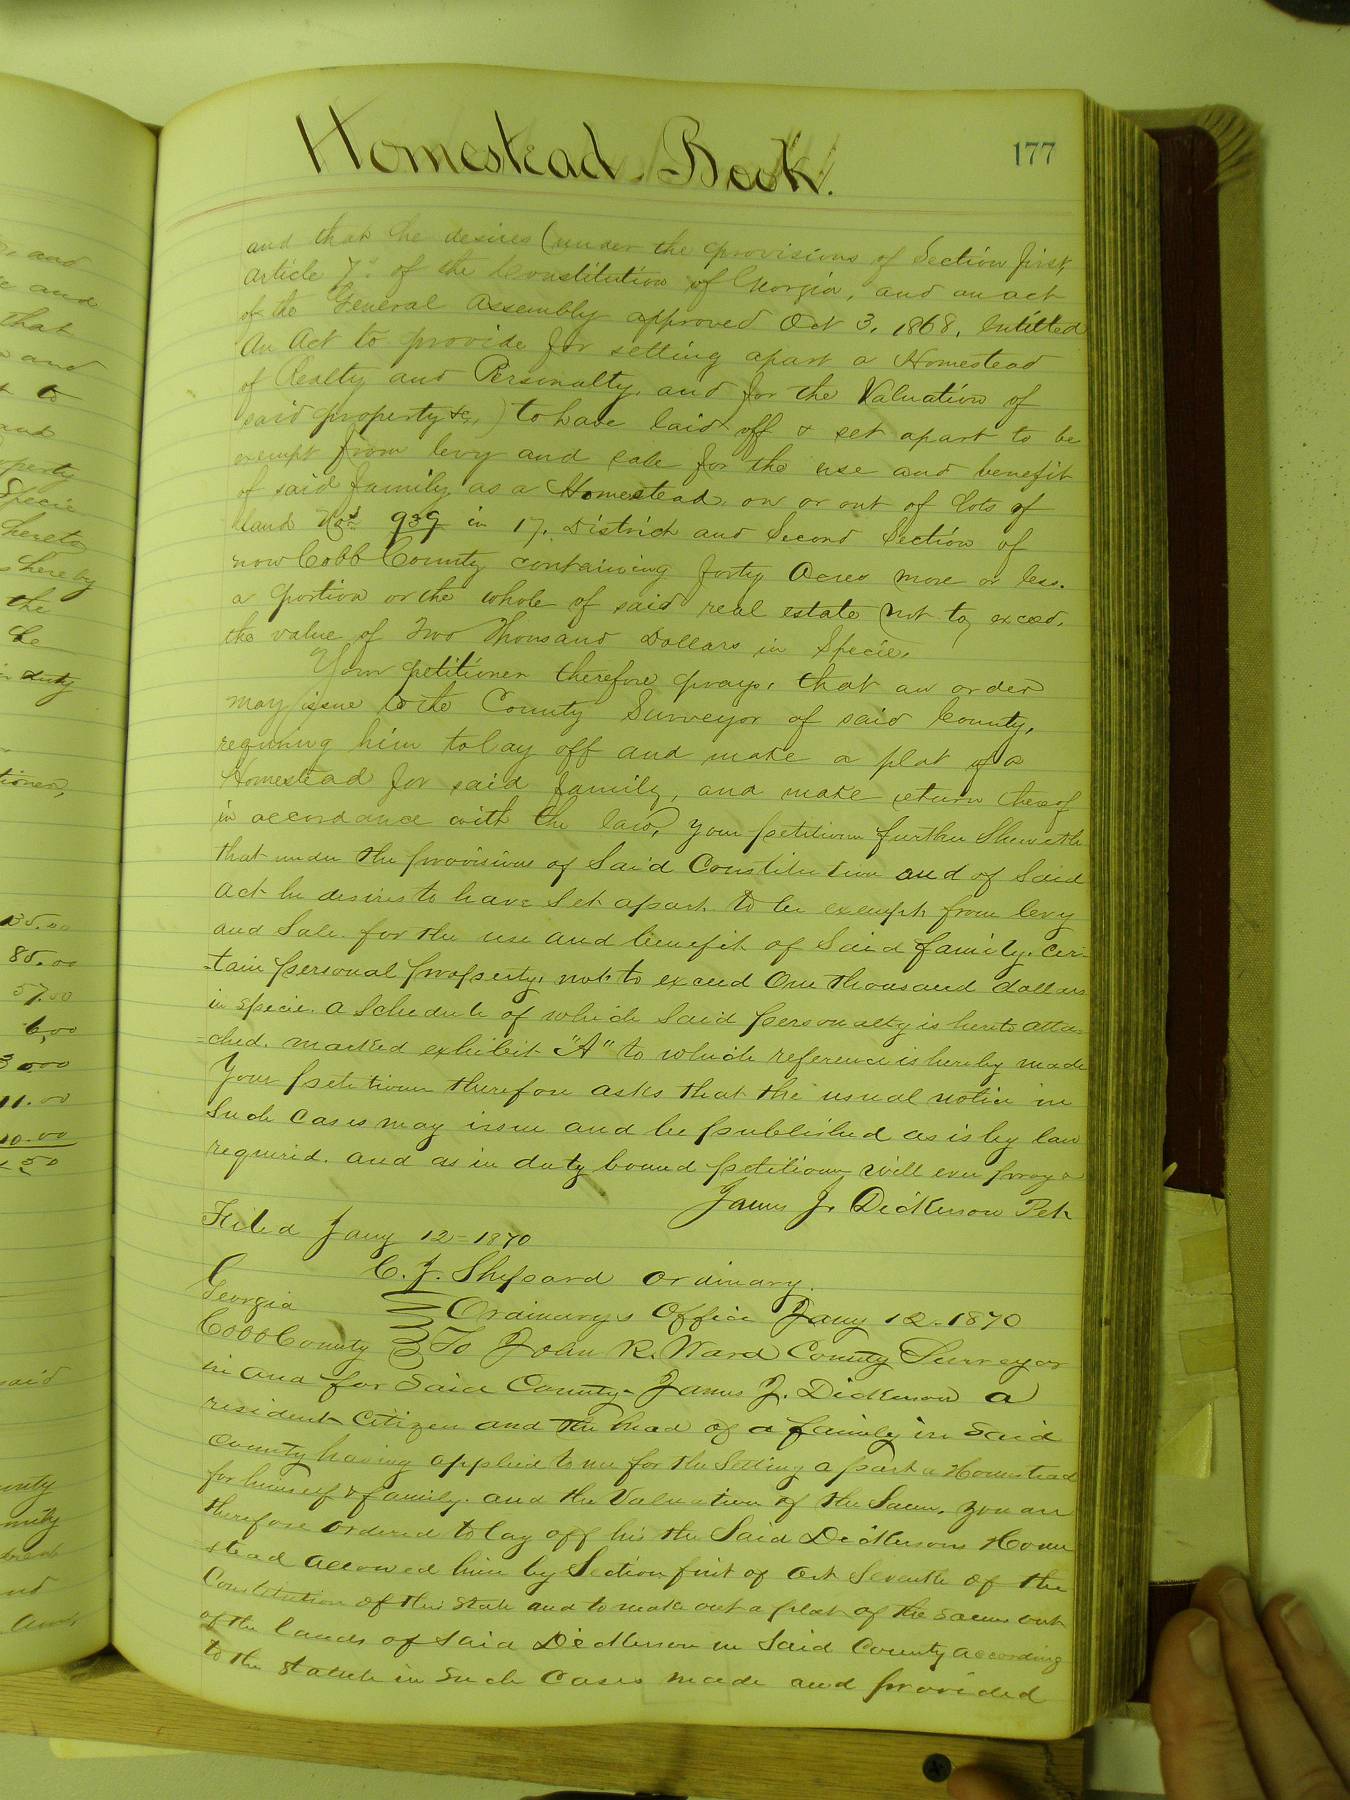 Homestead Book.
177
and that he desires (under the provisions of Section first,
article 7th of the Constitution of Georgia, and an act
of the General Assembly approved Oct 3, 1868, Entitled
An Act to provide for setting apart a Homestead
of Realty and Personalty, and for the Valuation of
said property &c,) to have laid off & set apart to be
exempt from levy and sale for the use and benefit
of said family, as a Homestead, on or out of lots of
land Nos 939 in 17, District and Second Section of
now Cobb County containing forty Acres more or less.
a portion or the whole of said real estate not to exceed,
the value of Two Thousand Dollars in Specie,
Your petitioner therefore prays, that an order
may issue to the County Surveyor of said County,
requiring him to lay off and make a plat of a
Homestead for said family, and make return thereof
in accordance with the law, your petitioner further Sheweth
that under the provisions of Said Constitution and of Said
act he desires to have Set apart to be exempt from levy
and Sale for the use and benefit of Said family, cer-
-tain personal property, not to exceed One thousand dollars
in specie. a Schedule of which Said personalty is hereto atta-
-ched. marked exhibit "A" to which reference is hereby made
Your petitioner therefore asks that the usual notice in
Such cases may issue and be published as is by law
required. and as in duty bound petitioner will ever pray &
James J. Dickerson Petr
Filed Jany 12 - 1870
C. J. Shepard Ordinary.
Georgia
Ordinarys Office Jany 12. 1870
Cobb County To John R. Ward County Surveyor
in and for Said County - James J. Dickerson a
resident Citizen and the head of a family in Said
County having applied to me for the Setting apart a Homestead
for himself & family. and the Valuation of the Same. you are
therefore ordered to lay off his the Said Dickersons Home
stead allowed him by Section first of Art Seventh of the
Constitution of this State and to make out a plat of the Same out
of the lands of Said Dickerson in Said County according
to the Statute in Such Cases made and provided
and
and
that
and
to
and
property
Specie
hereto
hereby
the
he
duty
135.00
85.00
57.00
6,00
11.00
10.00
50
said